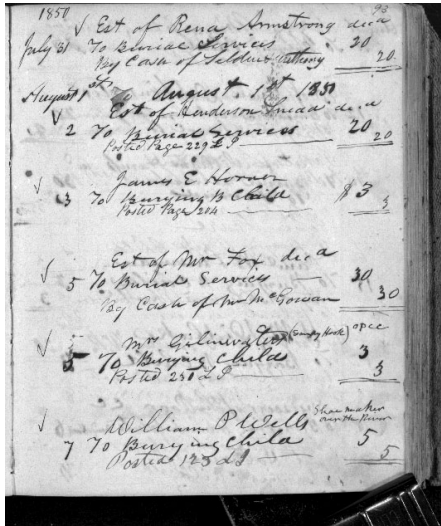 1850 93
Est of Rena Armstrong decd
July 31 To Burial Services 20
By Cash of Anthony 20
August 1st August 1st 1850
Est of Henderson Snead decd
2 To Burial Services 20 20
Posted Page 229 L J
James E Horner
3 To Burying B Child $3 3
Posted Page 204
Est of Mr Fox decd
5 To Burial Services 30
By Cash of Mr McGowan 30
Mrs Gilinwaters opcc
5 To Burying Child 3
Posted 250 L J 3
William P Wells Shoe maker
7 To Burying Child 5
Posted 125 L J 5